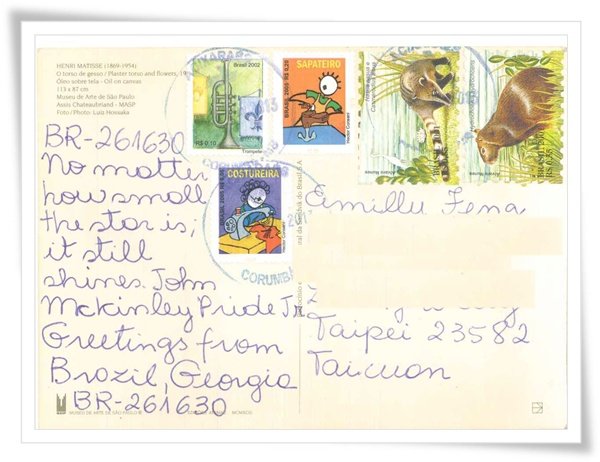 HENRI MATISSE (1869-1954)
O torso de gesso / Plaster torso and flowers, 19
Óleo sobre tela - Oil on canvas
113 x 87 cm
Museu de Arte de São Paulo
Assis Chateaubriand - MASP
Foto / Photo: Luiz Hossaka
BR-261630
No matter
how small
the star is,
it still
shines. John
McKinley Pride Jr
Greetings from
Brazil, Georgia
BR-261630
MUSEU DE ARTE DE SÃO PAULO
Brasil 2002
R$ 0,10
Trompete
SAPATEIRO
BRASIL 2005 R$ 0,20
Hector Consani
COSTUREIRA
Hector Consani
CORUMBÁ
Alvaro Nunes
Alvaro Nunes
Emillu Fena
Taipei 23582
Taiwan